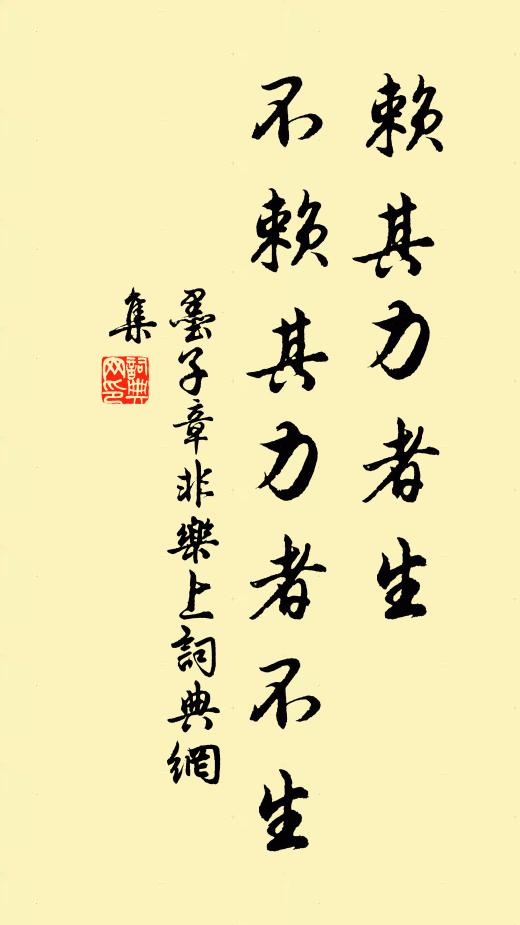 賴其力者生
不賴其力者不生
墨子章非樂上詞典網
集
詞典
网印